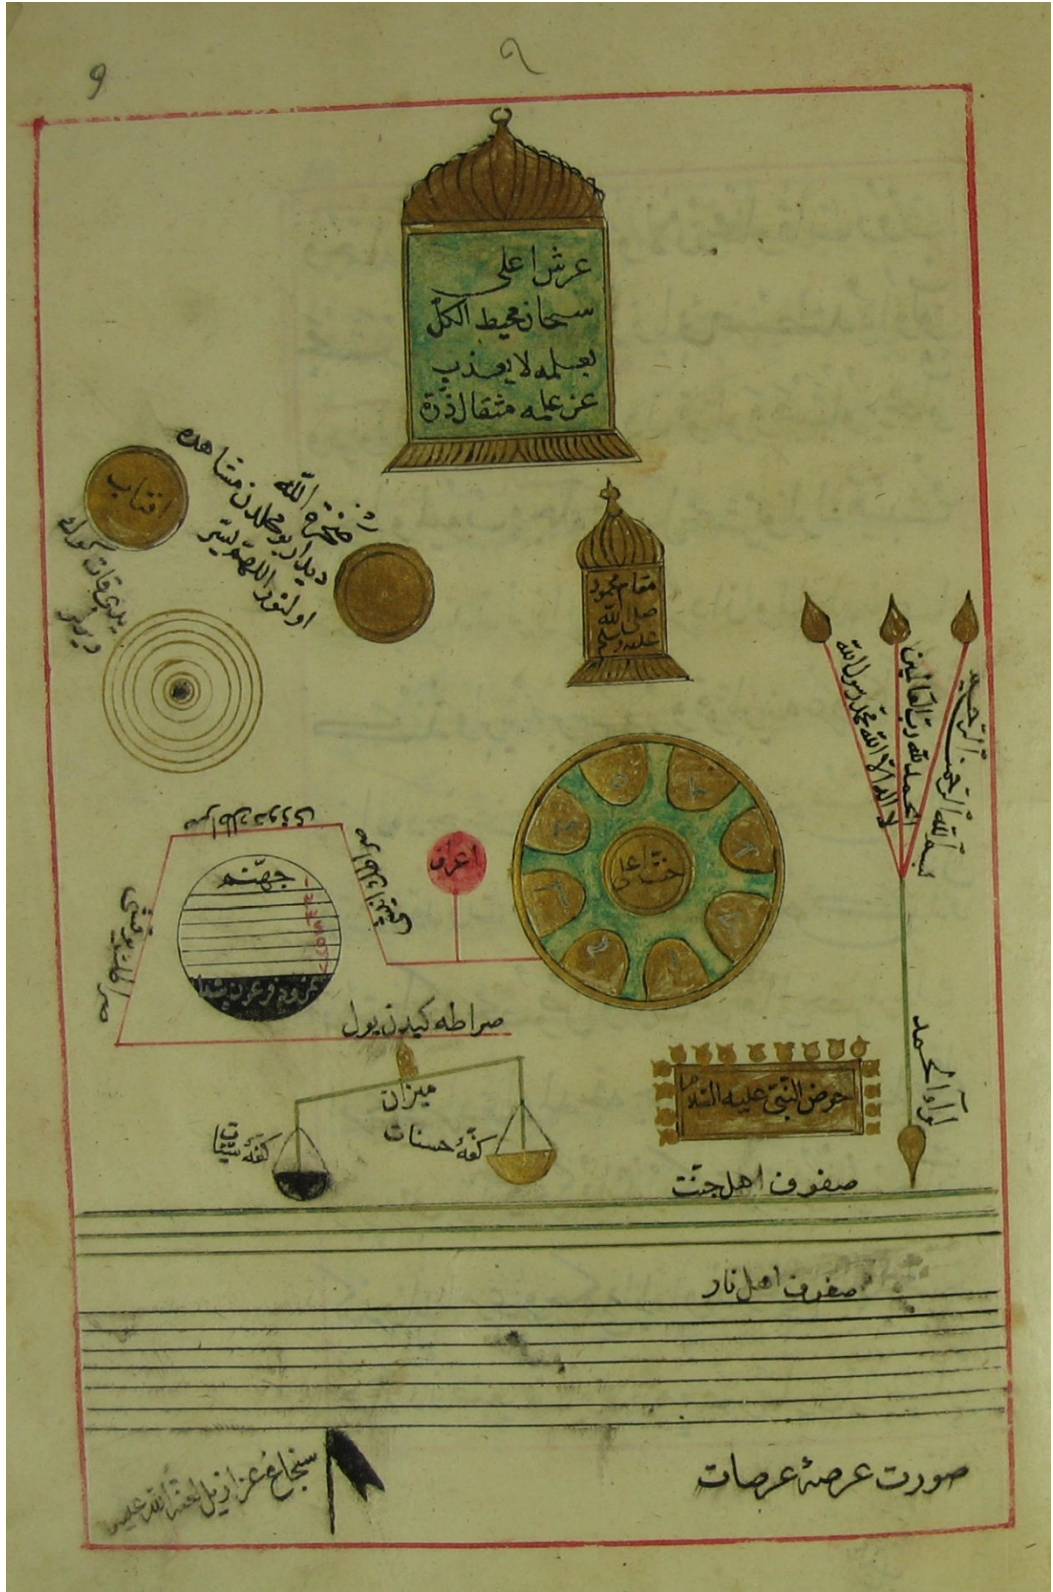 ٩
عرش اعلى
سبحان محيط الكل
بعلمه لا يعذب
عن علمه مثقال ذرّة
افتاب
يدى قات كوك
صخرة الله
ديدار بو محلدن مشاهده
اولنور اللهم يسّر
مقام محمود
صلى الله
عليه وسلم
بسم الله الرحمن الرحيم
الحمد لله رب العالمين
لا اله الا الله محمد رسول الله
لواء الحمد
جنّت اعلى
اعراف
جهنّم
نمرود فرعون شداد
صراطك دوزى
صراطك يوقشى
صراطه كيدن يول
ميزان
كفّهٔ حسنات
كفّهٔ سيّئات
حوض النبّى عليه السّلام
صفوف اهل جنّت
صفوف اهل نار
صورت عرصهٔ عرصات
سنجاغ عزازيل لعنة الله عليه